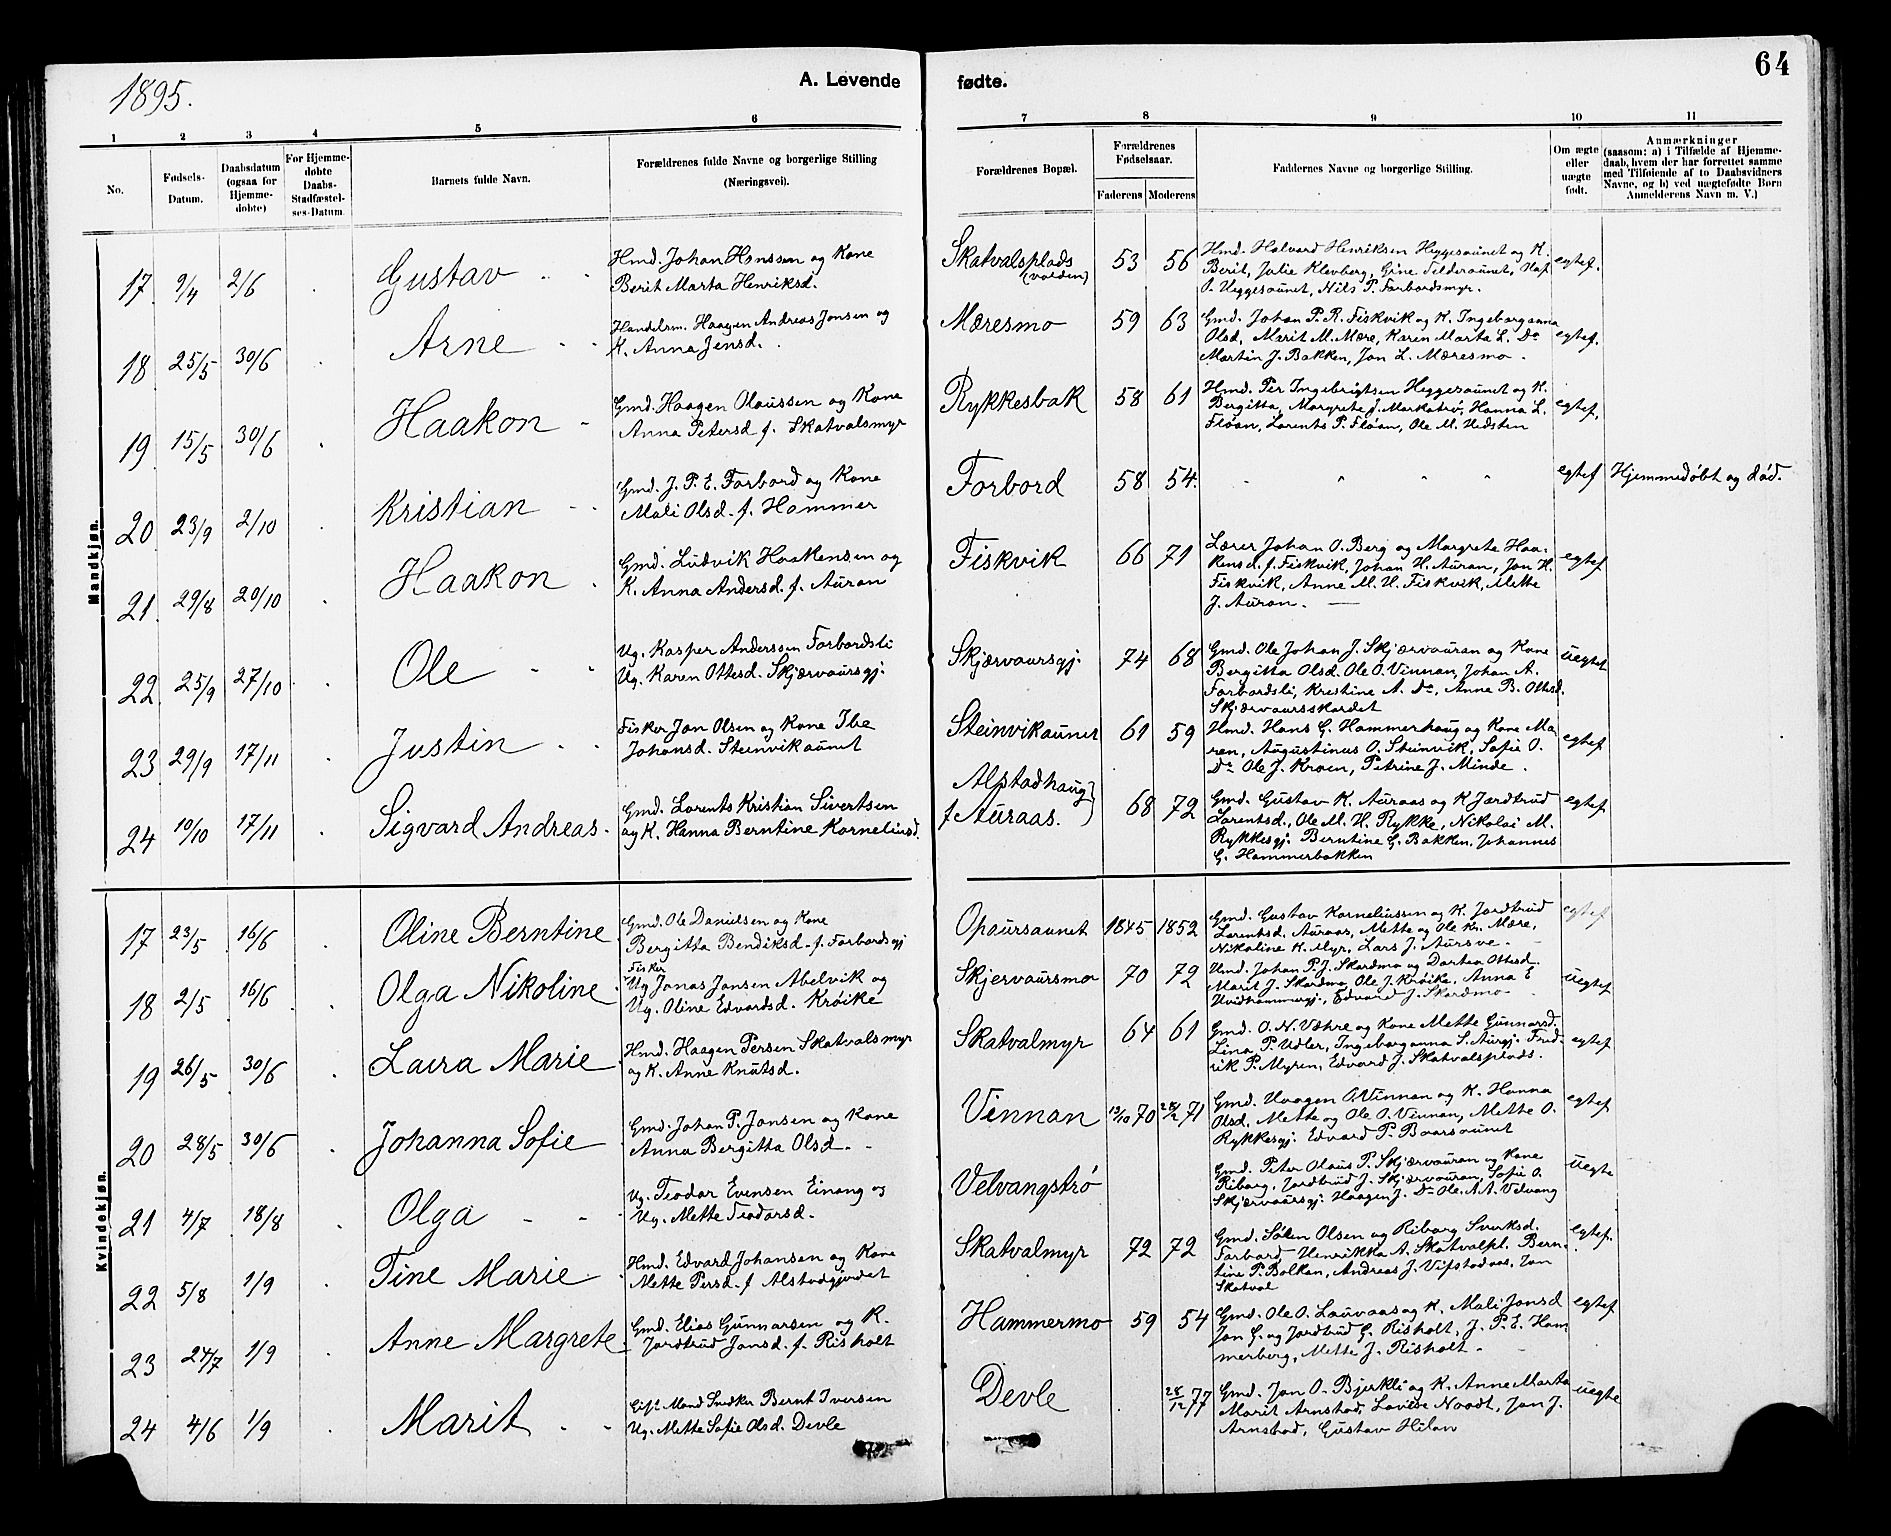 1895.
A. Levende fødte.
64
1 2 3 4 5 6 7 8 9 10 11
No.
Fødsels-Datum.
Daabsdatum (ogsaa for Hjemme-døbte)
For Hjemme-døbte Daabs-Stadfæstel-ses-Datum
Barnets fulde Navn.
Forældrenes fulde Navne og borgerlige Stilling (Næringsvei).
Forældrenes Bopæl.
Forældrenes Fødselsaar.
Faderens Moderens
Faddernes Navne og borgerlige Stilling.
Om ægte eller uægte født.
Anmærkninger (saasom: a) i Tilfælde af Hjemme-daab, hvem der har forrettet samme med Tilføiende af to Daabsvidners Navne, og b) ved uægtefødte Børn Anmelderens Navn m. V.)
Mandkjøn.
17 9/4 2/6 Gustav
Hmd. Johan Hanssen og Kone
Berit Marta Henriksd.
Skatvalsplads (volden) 53 56
Hmd. Halvard Henriksen Heggesaunet og K.
Berit, Julie Klevberg, Gine Felderaunet, Haf.
O. Heggesaunet, Nils P. Forbordsmyr.
egtef.
18 25/5 30/6 Arne
Handelsm. Haagen Andreas Jonsen og
K. Anna Jensd.
Mæresmo 59 63
Gmd. Johan P. R. Fiskvik og K. Ingeborganna
Olsd, Marit M. Mære, Karen Marta L. Do
Martin J. Bakken, Jon L. Mæresmo.
egtef.
19 15/5 30/6 Haakon
Gmd. Haagen Olaussen og Kone
Anna Petersd f. Skatvalsmyr
Rykkesbak 58 61
Hmd. Per Ingebrigtsen Heggesaunet og K.
Bergitta, Margrete J. Markatrø, Hanna L.
Fløan, Lorents P. Fløan, Ole M. Hedsten
egtef.
20 23/9 2/10 Kristian
Gmd. J. P. E. Forbord og Kone
Mali Olsd. f. Hammer
Forbord 58 54.
egtef Hjemmedøbt og død.
21 29/8 20/10 Haakon
Gmd. Ludvik Haakensen og
K. Anna Andersd. f. Auran
Fiskvik 66 71
Lærer Johan O. Berg og Margrete Haa-
kensd. f. Fiskvik, Johan H. Auran, Jon H.
Fiskvik, Anne M. H. Fiskvik, Mette
J. Auran.
egtef
22 25/9 27/10 Ole
Ug. Kasper Anderssen Forbordsli
Ug. Karen Ottesd. Skjærvaursgj.
Skjærvaursgj. 74 68
Gmd. Ole Johan J. Skjærvauran og Kone
Bergitta Olsd. Ole O. Vinnan, Johan A.
Forbordsli, Krestine A. Do, Anne B. Ottesd.
Skjærvaursskardet
uegtef
23 29/9 17/11 Justin
Fisker Jon Olsen og Kone Ibe
Johansd. Steinvikaunet
Steinvikaunet 61 59
Hmd. Hans G. Hammerhaug og Kone Ma-
ren, Augustinus O. Steinvik, Sofie O.
Do Ole J. Kroen, Petrine J. Minde.
egtef
24 10/10 17/11 Sigvard Andreas
Gmd. Lorents Kristian Sivertsen
og K. Hanna Berntine Korneliusd.
Alstadhaug f Auraas. 68 72
Gmd. Gustav K. Auraas og K Jærdtrud
Larentsd., Ole M. H. Rykke, Nikolai M.
Rykkesgj. Berntine G. Bakken, Johannes
G. Hammerbakken
egtef
Kvindekjøn.
17 23/5 16/6 Oline Berntine
Gmd. Ole Danielsen og Kone
Bergitta Bendiksd. f. Forbordsgj
Opaursaunet 1845 1852
Gmd. Gustav Korneliussen og K. Jordtrud
Lorentsd. Auraas, Mette og Ole Kr. Mære,
Nikoline K. Myr, Lars J. Aursve.
egtef
18 2/5 16/6 Olga Nikoline
Fisker
Ug Jonas Jonsen Abelvik og
Ug. Oline Edvardsd. Krøike
Skjervaursmo 70 72
Hmd. Johan P. J. Skardmo og Dortea Ottesd.
Marit J. Skardmo, Ole J. Krøike, Anna E
Hvidhammergj., Edvard J. Skardmo
uegtef
19 26/5 30/6 Laura Marie
Hmd. Haagen Persen Skatvalsmyr
og K. Anne Knutsd.
Skatvalmyr 64 61
Gmd. O. N. Væhre og Kone Mette Gunnarsd.
Lina P. Udler, Ingeborganna S. Aurgj. Fred-
rik P. Myren, Edvard J. Skatvalsplads.
egtef
20 28/5 30/6 Johanna Sofie
Gmd. Johan P. Jonsen og Kone
Anna Bergitta Olsd.
Vinnan 13/10 70 28/2 71
Gmd. Haagen O. Vinnan og K. Hanna
Olsd, Mette og Ole O. Vinnan, Mette O.
Rykkesgj. Edvard P. Baarsaunet
egtef
21 4/7 18/8 Olga
Ug. Teodor Evensen Einang og
Ug. Mette Teodorsd.
Velvangstrø
Gmd. Peter Olaus P. Skjærvauran og Kone
Riborg, Jordtrud J. Skjærvauran, Sofie O.
Skjærvaursgj. Haagen J. Do Ole A. A. Velvang
uegte
22 5/8 1/9 Tine Marie
Hmd. Edvard Johansen og Kone
Mette Persd. f Alstadgjerdet
Skatvalmyr 72 72
Gmd. Søren Olsen og Riborg Sverksd.
Forbord, Henrikka A. Skatvalpl. Bern-
tine P. Bolkan, Andreas J. Vifstadaas, Jon
Skatval
egtef.
23 24/7 1/9 Anne Margrete
Gmd. Elias Gunnarsen og K.
Jordtrud Jonsd. f. Risholt
Hammermo 59 54
Gmd. Ole O. Lauvaas og K. Mali Jonsd
Jon G. og Jordtrud G. Risholt, J. P. E. Ham
merberg, Mette J. Risholt
egtef
24 4/6 1/9 Marit
Gift Mand Snedker Bernt Iversen
Ug. Mette Sofie Olsd. Devle
Devle 28/12 77
Gmd. Jon O. Bjerkli og K. Anne Marta
Marit Arnstad, Lovise Naadt, Jon J.
Arnstad, Gustav Hilan
uegte